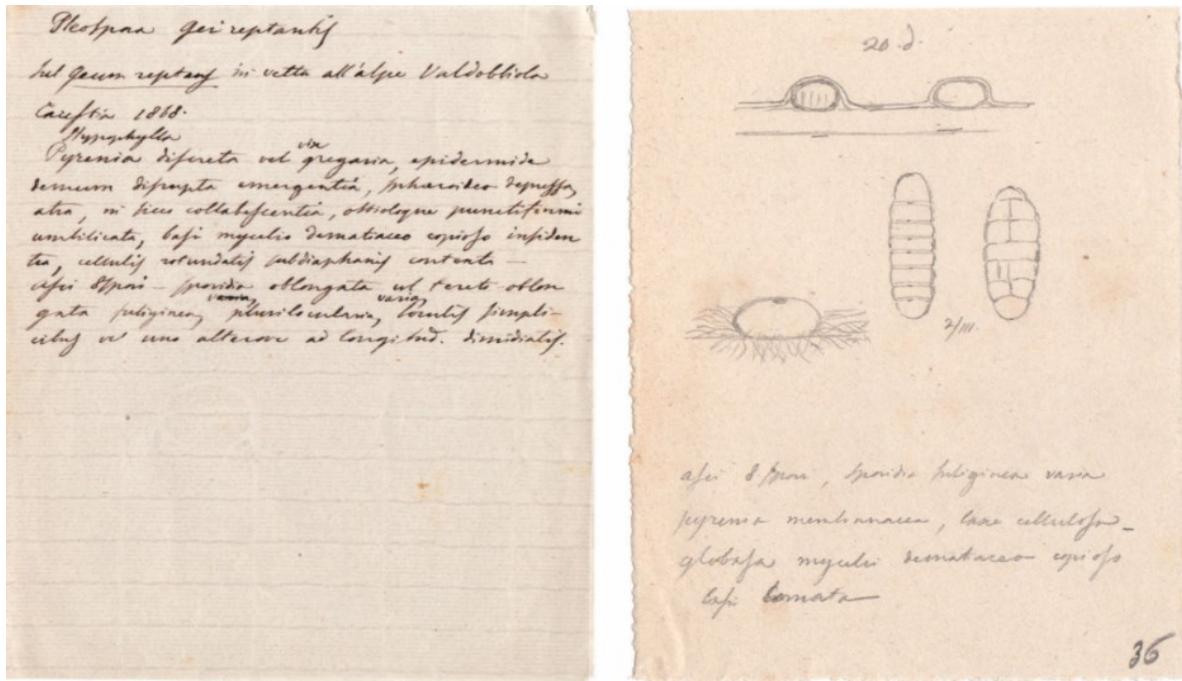 Pleospora Gei reptantis
Sul Geum reptans in vetta all'alpe Valdobbiola
Carestia 1868.
Hypophylla
Pyrenia discreta vel vix gregaria, epidermide
demum disrupta emergentia, sphaeroideo depressa,
atra, in sicco collabescentia, ostioloque punctiformi
umbilicata, basi mycelio dematiaceo copioso insiden
tia, cellulis rotundatis subdiaphanis contexta —
asci 8spori — sporidia oblongata vel tereti oblon
gata fuliginea, varia, plurilocularia, loculis simpli-
cibus vel uno alterove ad longitud. dimidiatis.
20.d.
2/III.
asci 8 spori, sporidia fuliginea varia
pyrenia membranacea, laxe cellulosa —
globosa mycelii dematiaceo copioso
basi comata
36